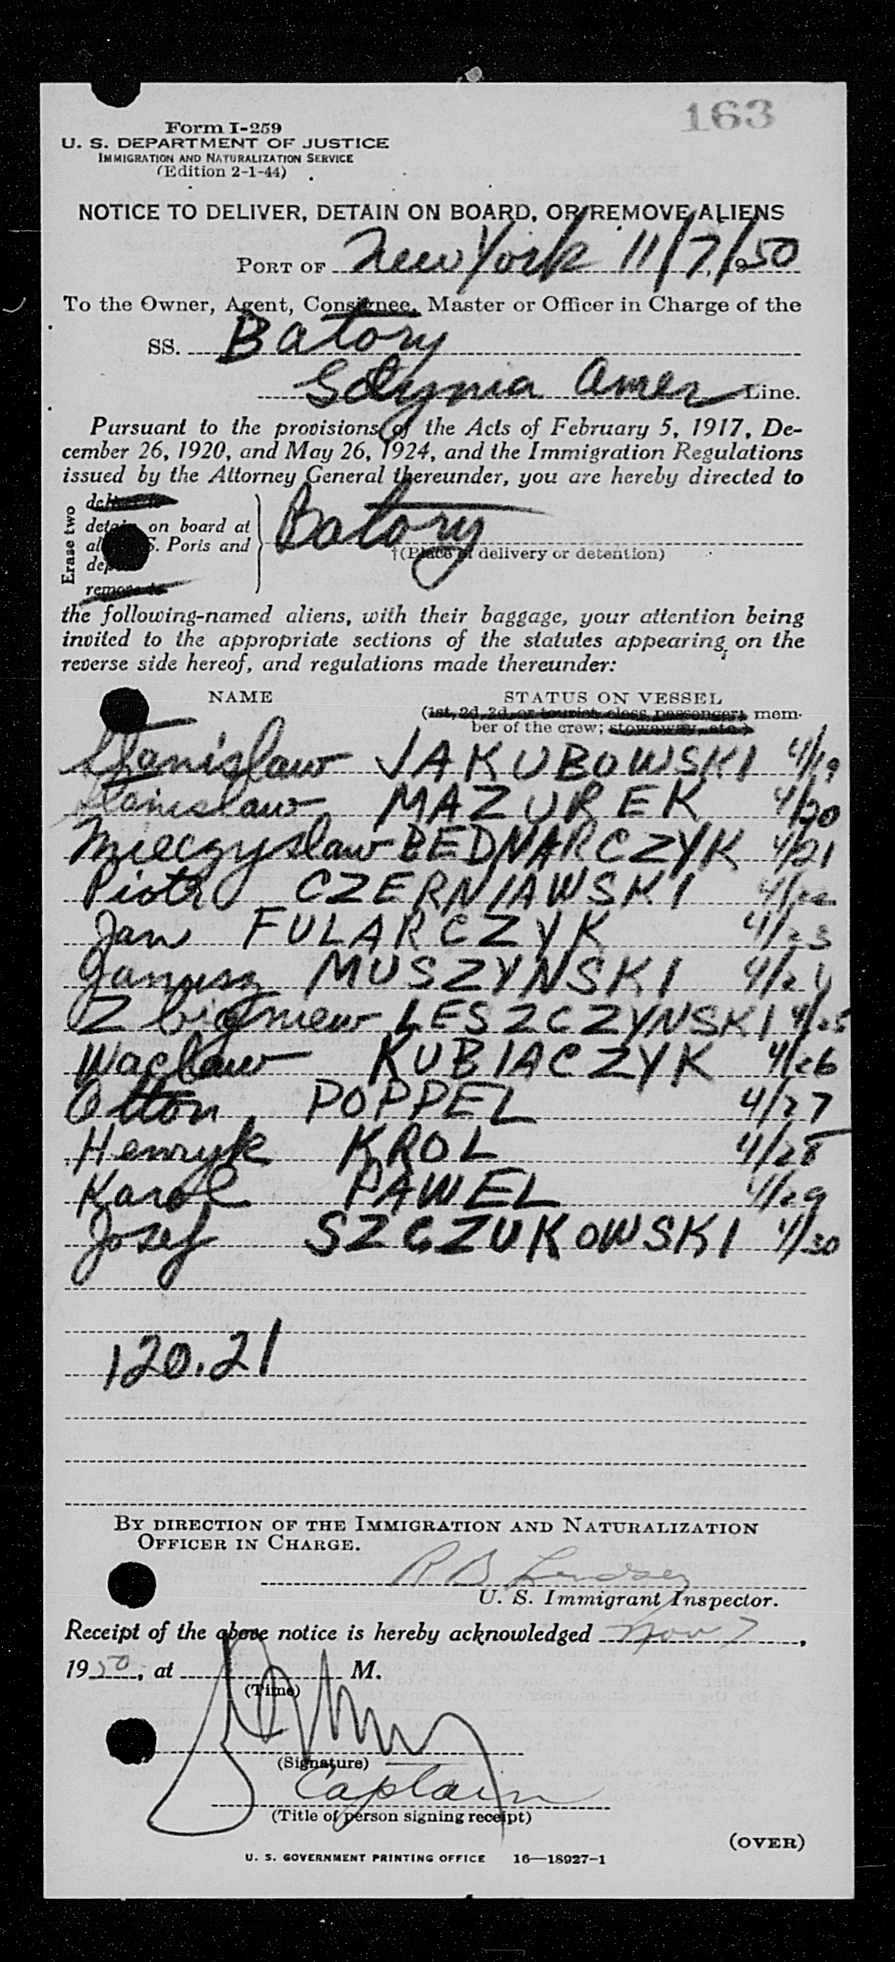 163
Form I-259
U. S. DEPARTMENT OF JUSTICE
IMMIGRATION AND NATURALIZATION SERVICE
(Edition 2-1-44)
NOTICE TO DELIVER, DETAIN ON BOARD, OR REMOVE ALIENS
PORT OF New York 11/7/1950
To the Owner, Agent, Consignee, Master or Officer in Charge of the
SS. Batory
Gdynia Amer Line.
Pursuant to the provisions of the Acts of February 5, 1917, De-
cember 26, 1920, and May 26, 1924, and the Immigration Regulations
issued by the Attorney General thereunder, you are hereby directed to
Erase two
deliver to
detain on board at
all S. Ports and
remove to
Batory
†(Place of delivery or detention)
the following-named aliens, with their baggage, your attention being
invited to the appropriate sections of the statutes appearing on the
reverse side hereof, and regulations made thereunder:
NAME STATUS ON VESSEL
(1st, 2d, 3d, or tourist class passenger; mem-
ber of the crew; stowaway, etc.)
Stanislaw JAKUBOWSKI 4/19
Stanislaw MAZUREK 4/20
Mieczyslaw BEDNARCZYK 4/21
Piotr CZERNIAWSKI 4/22
Jan FULARCZYK 4/23
Janusz MUSZYNSKI 4/24
Zbigniew LESZCZYNSKI 4/25
Waclaw KUBIACZYK 4/26
Otton POPPEL 4/27
Henryk KROL 4/28
Karol PAWEL 4/29
Josef SZCZUKOWSKI 4/30
120.21
BY DIRECTION OF THE IMMIGRATION AND NATURALIZATION
OFFICER IN CHARGE.
R B Lindsey
U. S. Immigrant Inspector.
Receipt of the above notice is hereby acknowledged Nov 7,
1950, at M.
(Time)
(Signature)
Captain
(Title of person signing receipt)
(OVER)
U. S. GOVERNMENT PRINTING OFFICE 16—18927-1